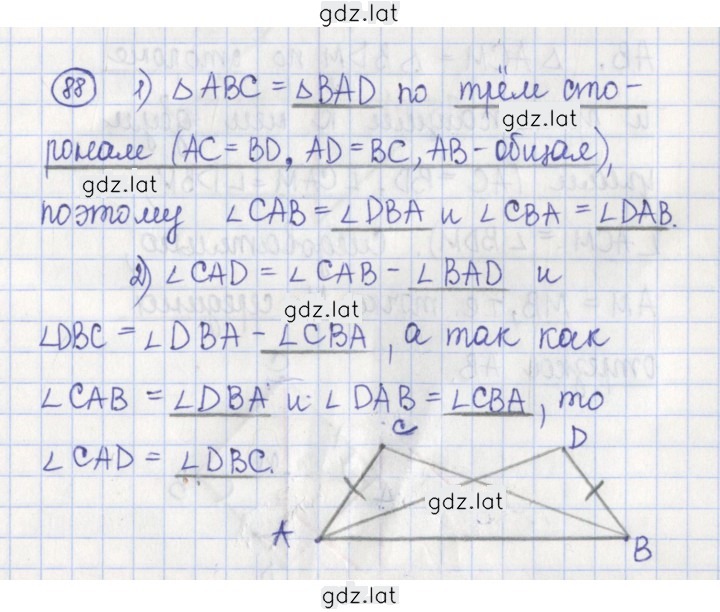 gdz.lat
88 1) △ABC = △BAD по трём сто-
gdz.lat
ронам (AC = BD, AD = BC, AB - общая),
gdz.lat
поэтому ∠CAB = ∠DBA и ∠CBA = ∠DAB.
2) ∠CAD = ∠CAB - ∠BAD и
gdz.lat
∠DBC = ∠DBA - ∠CBA, а так как
∠CAB = ∠DBA и ∠DAB = ∠CBA, то
∠CAD = ∠DBC.
C D
gdz.lat
A B
gdz.lat